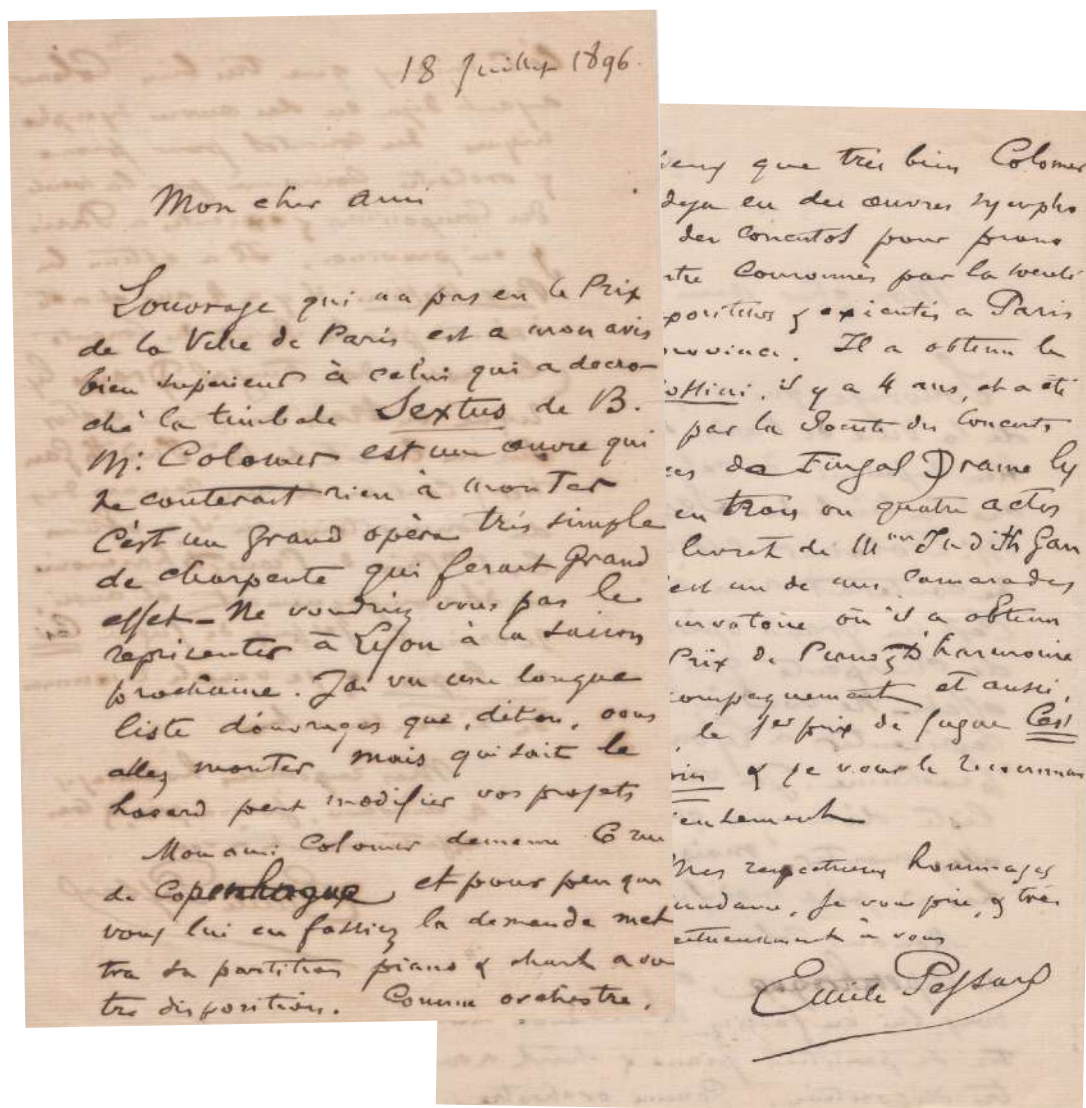 18 Juillet 1896.
Mon cher ami
L'ouvrage qui n'a pas eu le Prix
de la Ville de Paris est a mon avis
bien superieur à celui qui a decro-
ché la timbale Sextus de B.
M. Colomer est une œuvre qui
ne couterait rien à monter
C'est un grand opèra très simple
de charpente qui ferait grand
effet - Ne voudriez vous pas le
représenter à Lyon à la saison
prochaine. J'ai vu une longue
liste d'ouvrages que, dit on, vous
allez monter mais qui sait le
hasard peut modifier vos projets
Mon ami Colomer demeure 6 rue
de Copenhague et pour peu que
vous lui en fassiez la demande met
tra sa partition piano & chant a vo
tre disposition. Comme orchestre,
que très bien Colomer
deja eu des œuvres sympho
des Concertos pour piano
tre Couronnés par la
positeurs & exécutés a Paris
province. Il a obtenu le
Rossini, il y a 4 ans, et a été
par la Société des Concerts
de Fingal Drame ly
en trois ou quatre actes
livret de Mme Judith Gau
est un de mes Camarades
servatoire où il a obtenu
Prix de Piano, D'harmonie
compagnement et aussi,
le 1er prix de fugue C'est
& je vous le recomman
Mes respectueux hommages
madame, je vous prie, & très
ectueusement à vous
Emile Pessard